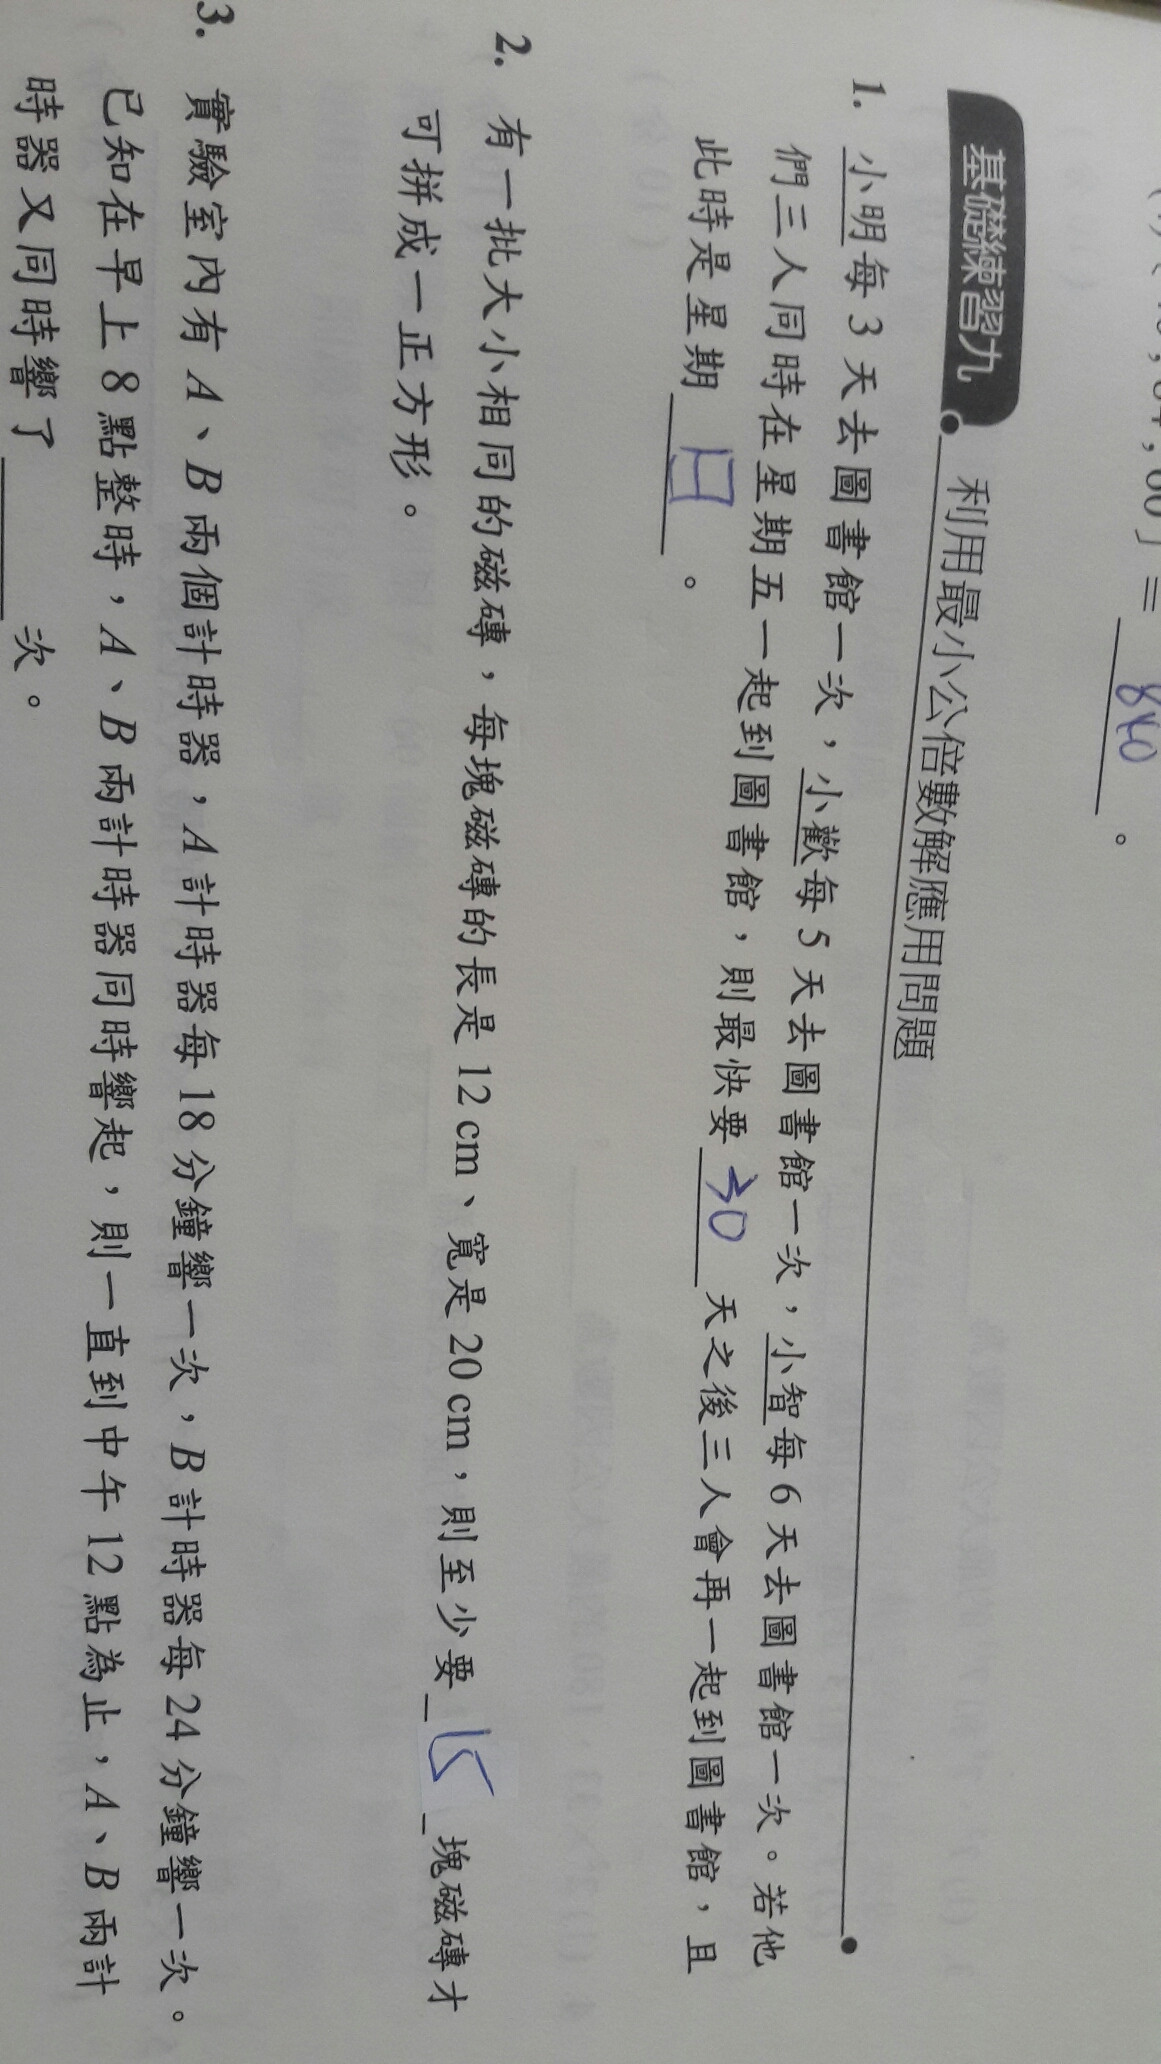 〕= 840 。
基礎練習九 利用最小公倍數解應用問題
1. 小明每3天去圖書館一次，小歡每5天去圖書館一次，小智每6天去圖書館一次。若他
們三人同時在星期五一起到圖書館，則最快要 30 天之後三人會再一起到圖書館，且
此時是星期 日 。
2. 有一批大小相同的磁磚，每塊磁磚的長是12cm、寬是20cm，則至少要 15 塊磁磚才
可拼成一正方形。
3. 實驗室內有A、B兩個計時器，A計時器每18分鐘響一次，B計時器每24分鐘響一次。
已知在早上8點整時，A、B兩計時器同時響起，則一直到中午12點為止，A、B兩計
時器又同時響了 ＿＿＿ 次。